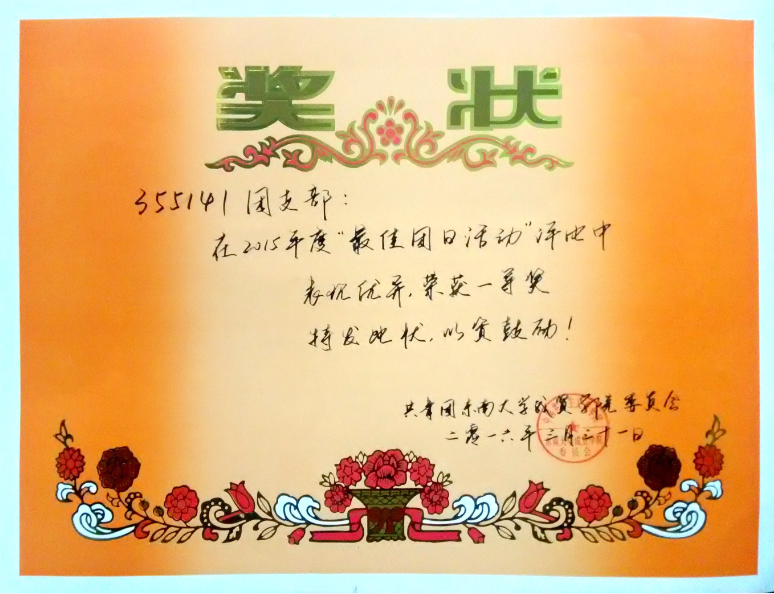 奖状
355141团支部：
在2015年度“最佳团日活动”评比中
表现优异，荣获一等奖
特发此状，以资鼓励！
共青团东南大学成贤学院委员会
二零一六年三月二十一日
委员会